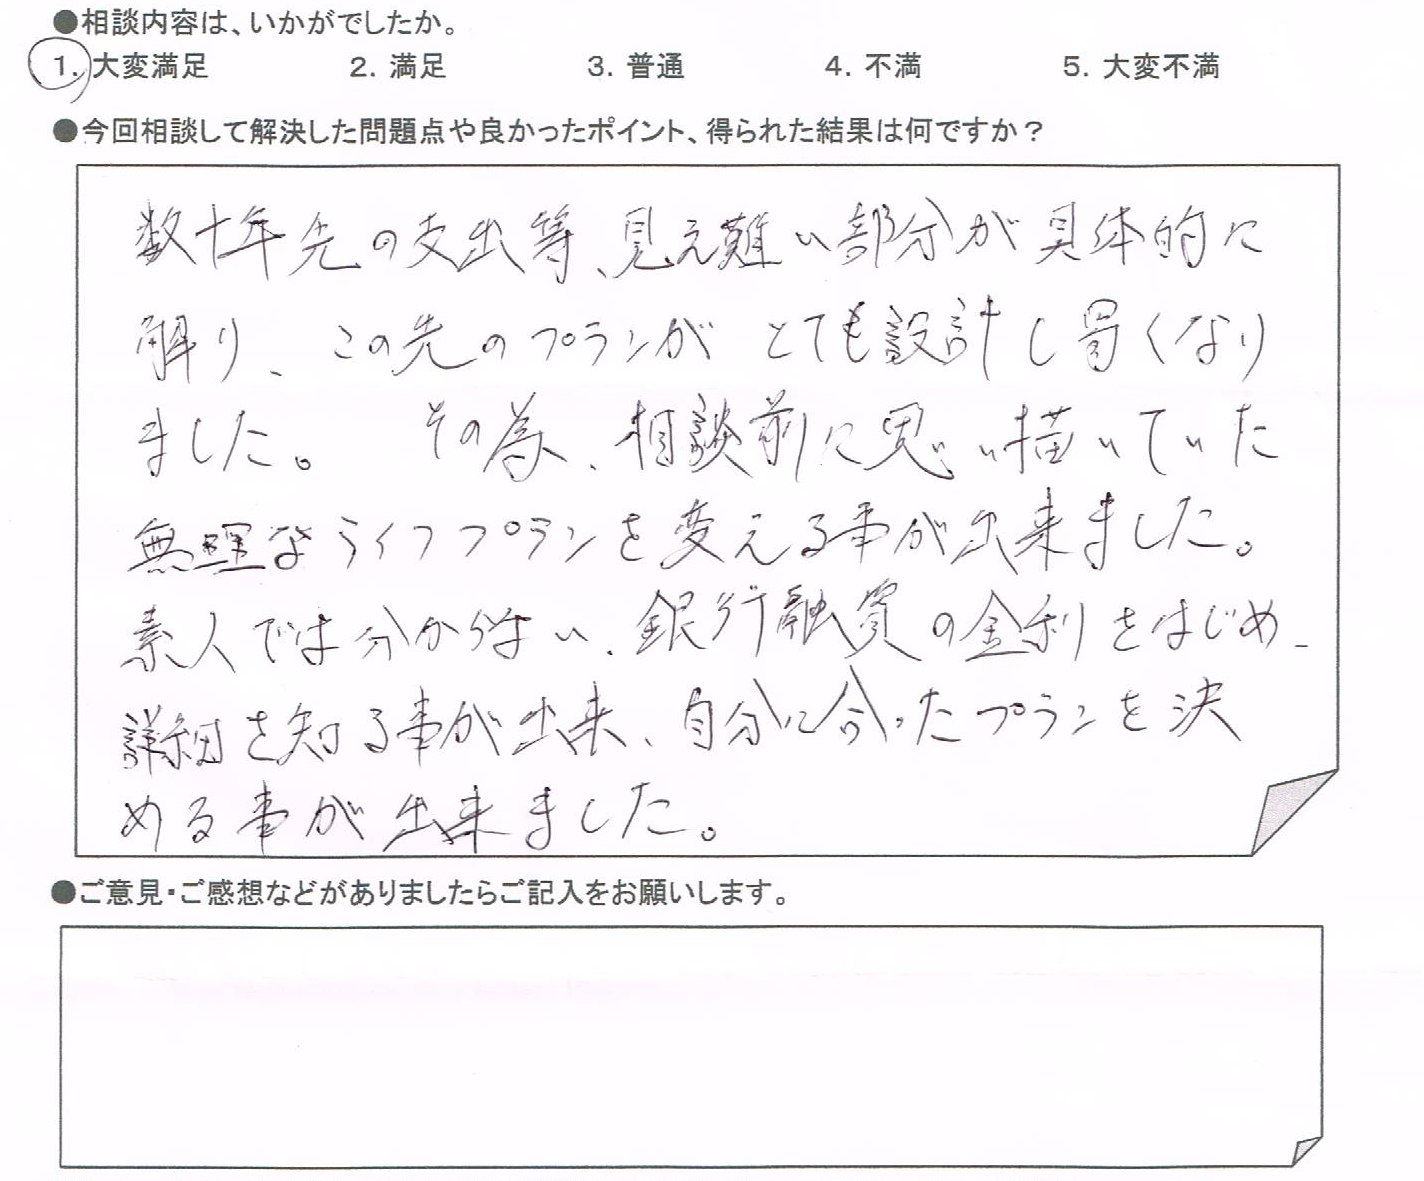 ●相談内容は、いかがでしたか。
1. 大変満足 2. 満足 3. 普通 4. 不満 5. 大変不満
●今回相談して解決した問題点や良かったポイント、得られた結果は何ですか？
数十年先の支出等、見え難い部分が具体的に
解り、この先のプランがとても設計し易くなり
ました。 その為、相談前に思い描いていた
無理なライフプランを変える事が出来ました。
素人では分からない、銀行融資の金利をはじめ、
詳細を知る事が出来、自分に合ったプランを決
める事が出来ました。
●ご意見・ご感想などがありましたらご記入をお願いします。